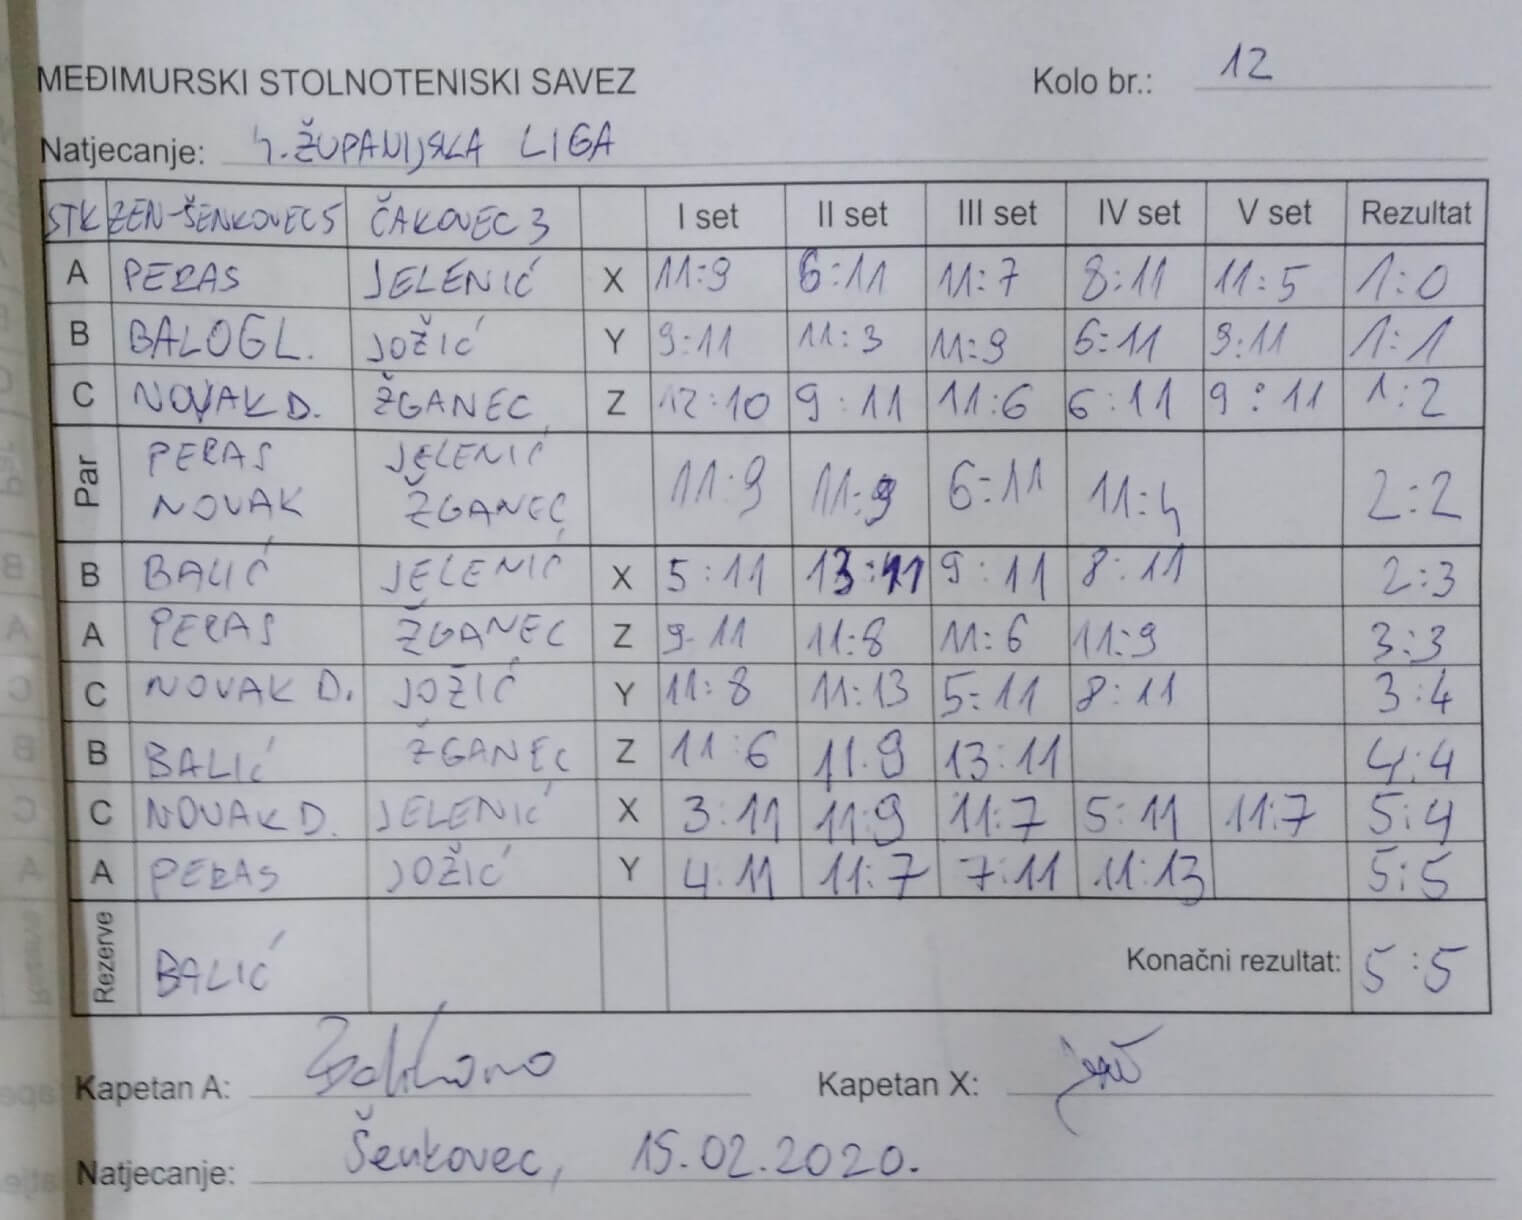 MEĐIMURSKI STOLNOTENISKI SAVEZ Kolo br.: 12
Natjecanje: 4. ŽUPANIJSKA LIGA
STK ZEN-ŠENKOVEC 5 ČAKOVEC 3 I set II set III set IV set V set Rezultat
A PERAS JELENIĆ X 11:9 6:11 11:7 8:11 11:5 1:0
B BALOG L. JOŽIĆ Y 9:11 11:3 11:9 6:11 9:11 1:1
C NOVAK D. ŽGANEC Z 12:10 9:11 11:6 6:11 9:11 1:2
Par PERAS JELENIĆ 11:9 11:9 6:11 11:4 2:2
NOVAK ŽGANEC
B BALIĆ JELENIĆ X 5:11 13:11 9:11 8:11 2:3
A PERAS ŽGANEC Z 9-11 11:8 11:6 11:9 3:3
C NOVAK D. JOŽIĆ Y 11:8 11:13 5:11 8:11 3:4
B BALIĆ ŽGANEC Z 11:6 11.9 13:11 4:4
C NOVAK D. JELENIĆ X 3:11 11:9 11:7 5:11 11:7 5:4
A PERAS JOŽIĆ Y 4.11 11:7 7:11 11:13 5:5
Rezerve BALIĆ Konačni rezultat: 5:5
Kapetan A: Kapetan X:
Natjecanje: Šenkovec, 15.02.2020.